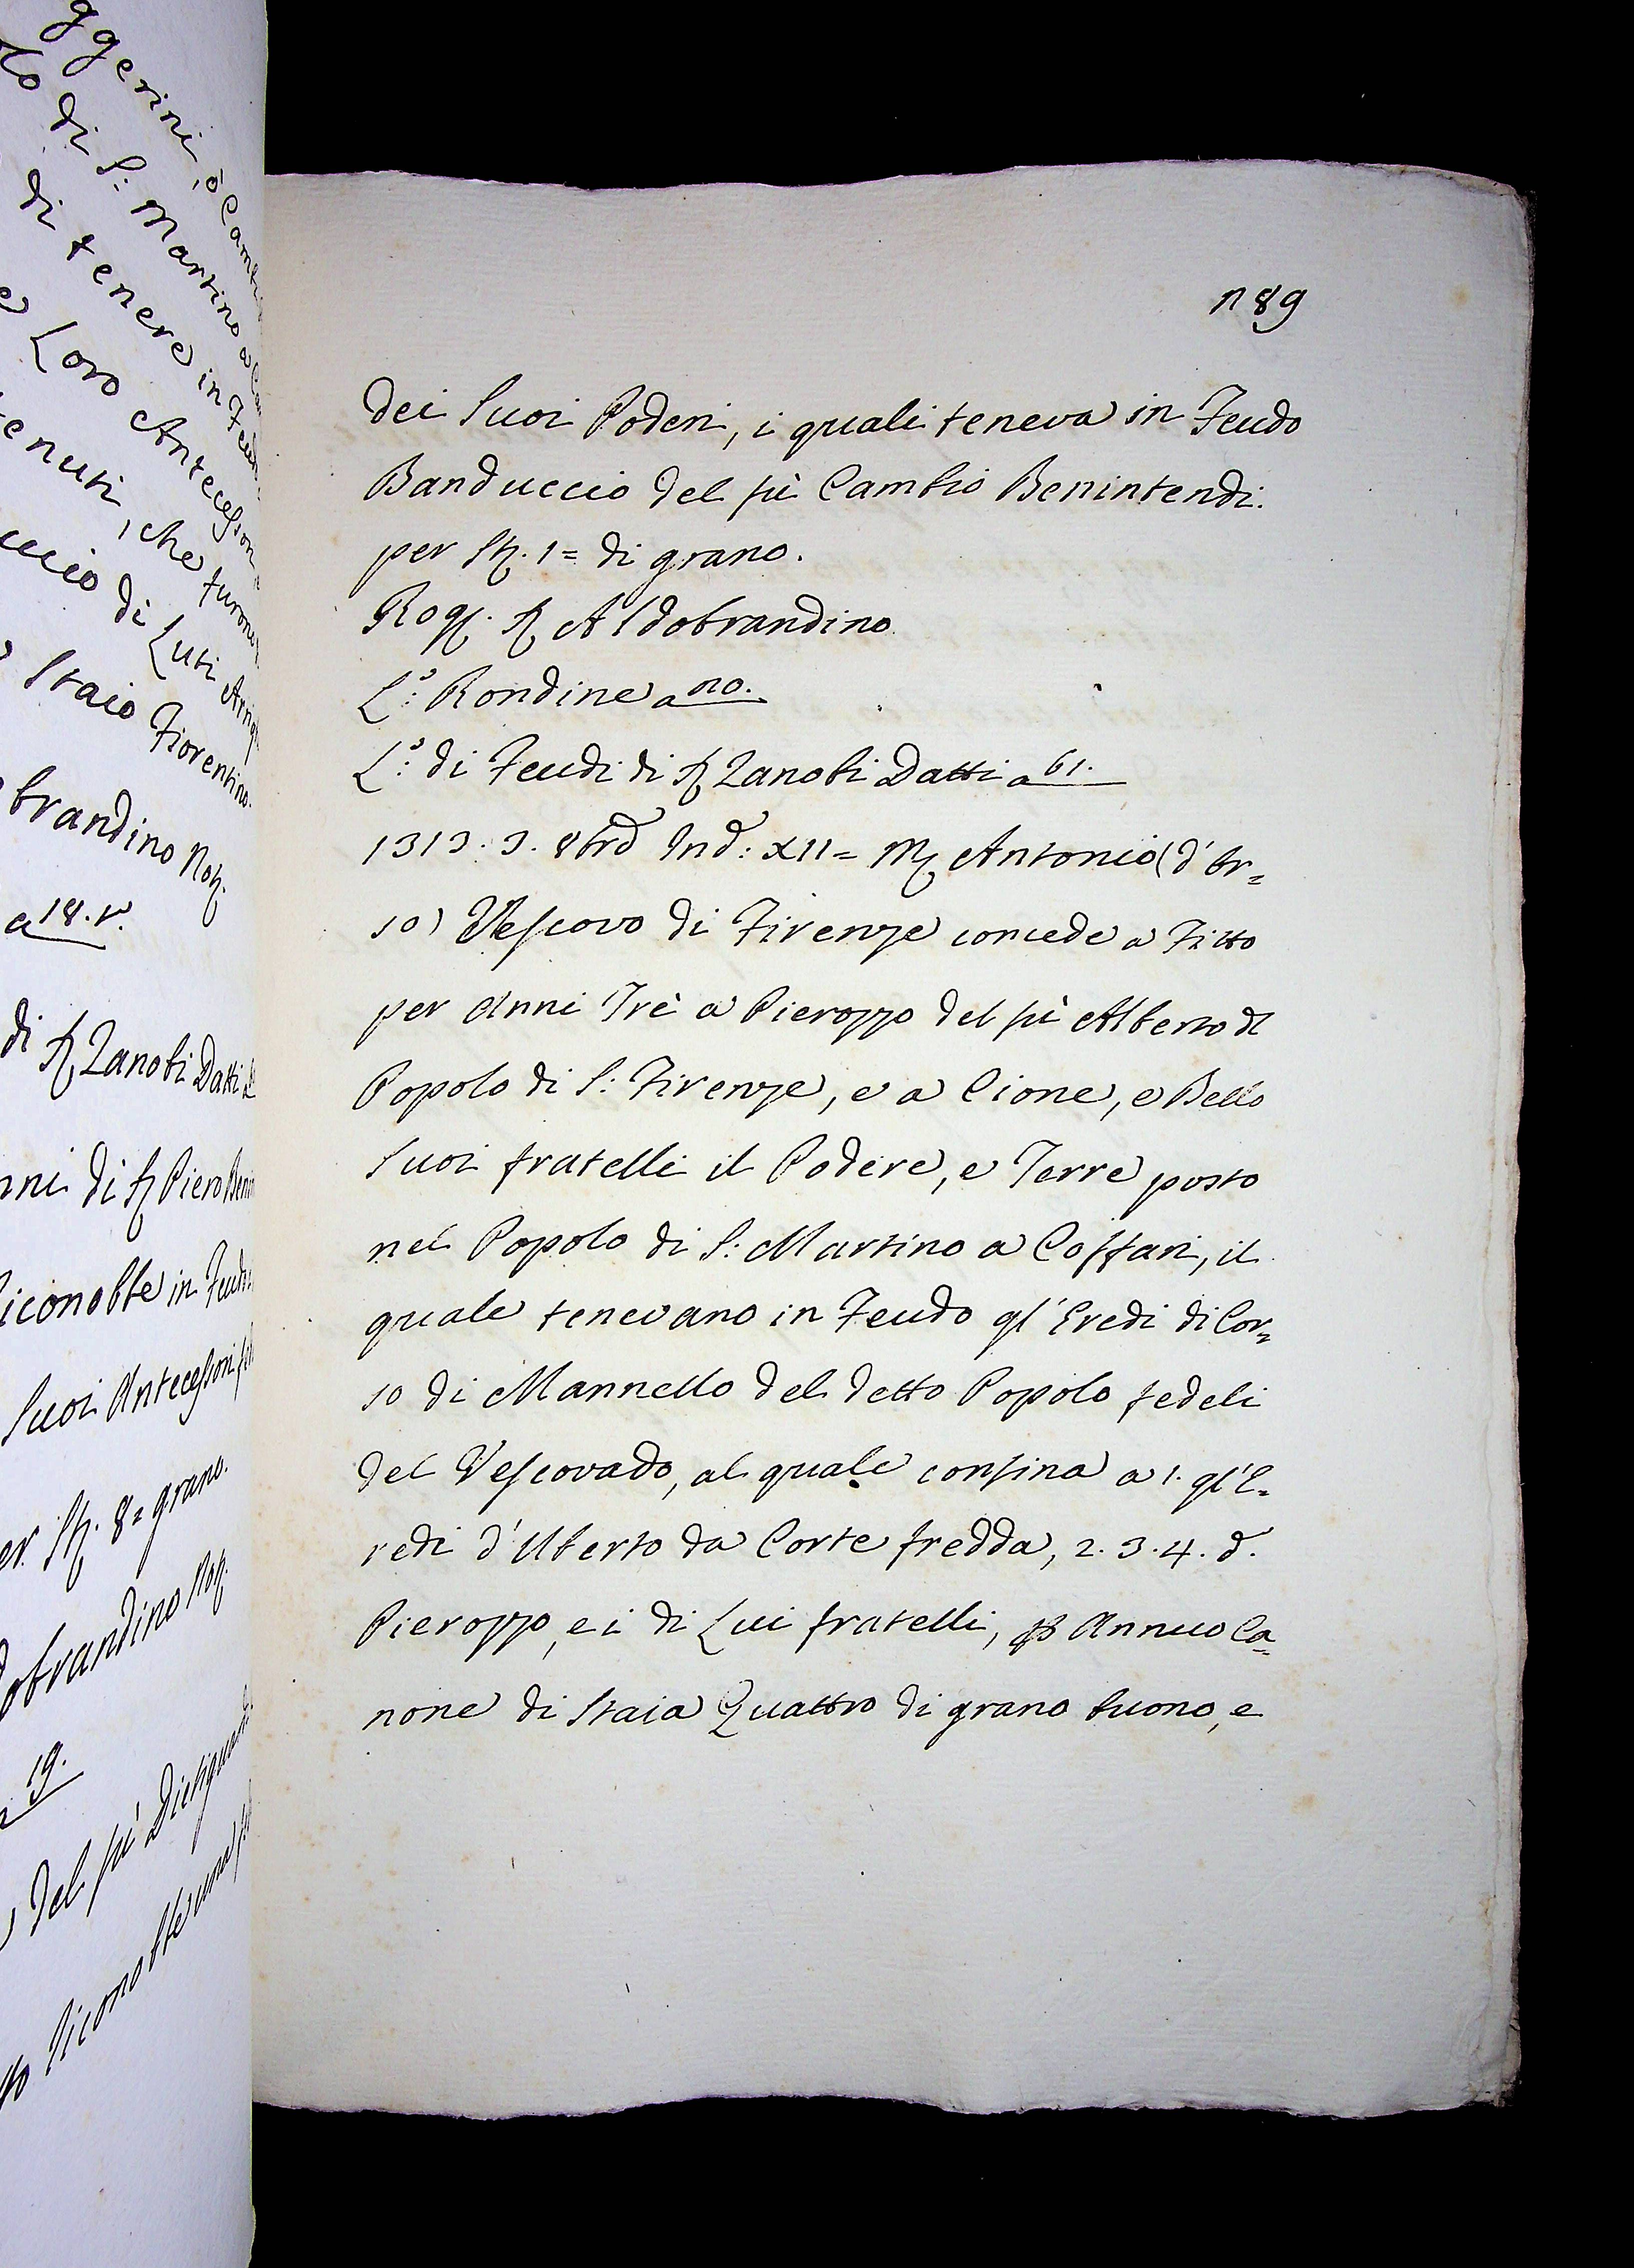 ggerini, ò Cambi
lo di S: Martino a
di tenere in Feu
e Loro Antecessori
tenuti, che furono
uccio di Luti Arrig
Staio Fiorentino.
brandino Not:
a 18. r.
di S. Zanobi Datti
nni di S. Piero Benin
iconobbe in Feudo
Suoi Antecessori
er St: 8= grano.
dobrandino Not:
19.
del fù Dietiguardi
to riconobbe una
n 89
dei Suoi Poderi, i quali teneva in Feudo
Banduccio del fù Cambio Benintendi.
per St: 1= di grano.
Rog: S. Aldobrandino
L.o: Rondine a 20.
L.o: di Feudi di S. Zanobi Datti a 61.
1313. 3. 8bre Ind: XII= M. Antonio (d'Or=
so) Vescovo di Firenze concede a Fitto
per Anni Trè a Pierozzo del fù Alberto dl
Popolo di S: Firenze, e a Cione, e Bello
Suoi fratelli il Podere, e Terre posto
nel Popolo di S: Martino a Coffari, il
quale tenevano in Feudo gl'Eredi di Cor=
so di Mannello del detto Popolo fedeli
del Vescovado, al quale confina a 1. gl'E=
redi d'Uberto da Corte fredda, 2. 3. 4. d.
Pierozzo, e i di Lui fratelli, p Annuo Ca=
none di Staia Quattro di grano buono, e